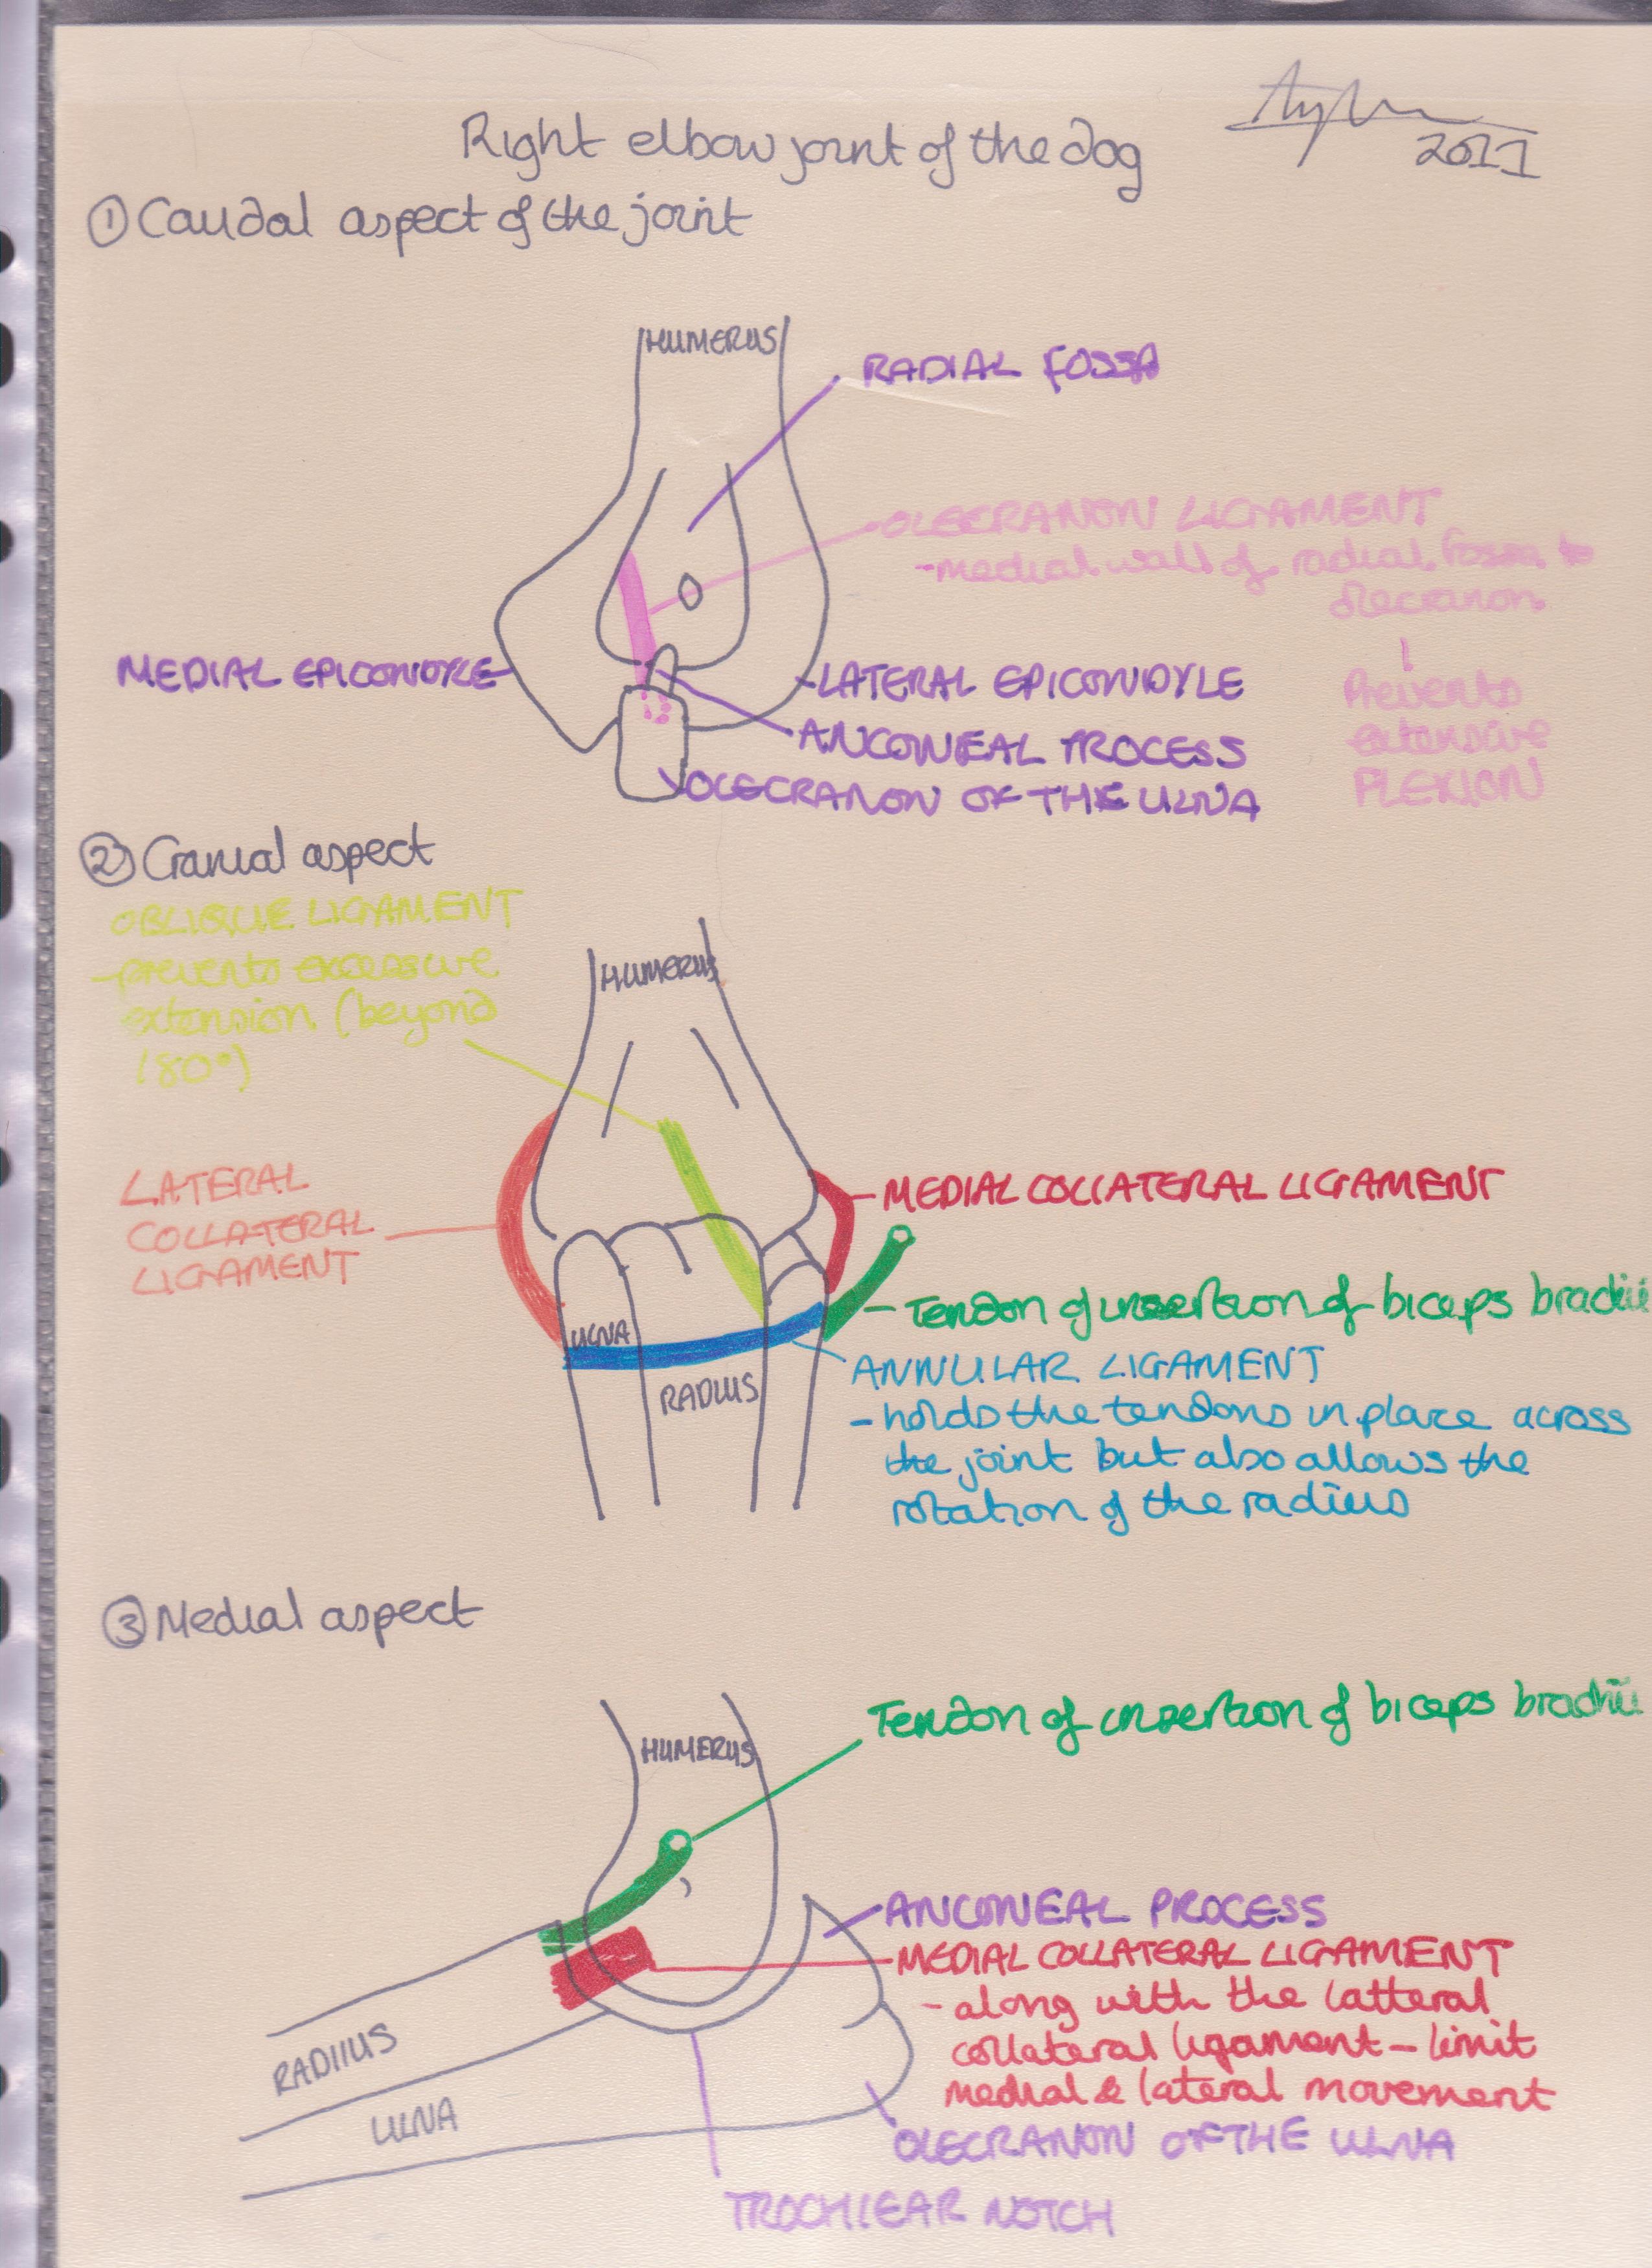 Right elbow joint of the dog
2011
① Caudal aspect of the joint
HUMERUS
RADIAL FOSSA
OLECRANON LIGAMENT
- medial wall of radial fossa to
olecranon
Prevents
extensive
FLEXION
MEDIAL EPICONDYLE
LATERAL EPICONDYLE
ANCONEAL PROCESS
OLECRANON OF THE ULNA
② Cranial aspect
OBLIQUE LIGAMENT
- prevents excessive
extension (beyond
180°)
HUMERUS
LATERAL
COLLATERAL
LIGAMENT
MEDIAL COLLATERAL LIGAMENT
- Tendon of insertion of biceps brachii
ULNA
RADIUS
ANNULAR LIGAMENT
- holds the tendons in place across
the joint but also allows the
rotation of the radius
③ Medial aspect
Tendon of insertion of biceps brachii
HUMERUS
ANCONEAL PROCESS
MEDIAL COLLATERAL LIGAMENT
- along with the latteral
collateral ligament - limit
medial & lateral movement
RADIIUS
ULNA
OLECRANON OF THE ULNA
TROCHLEAR NOTCH